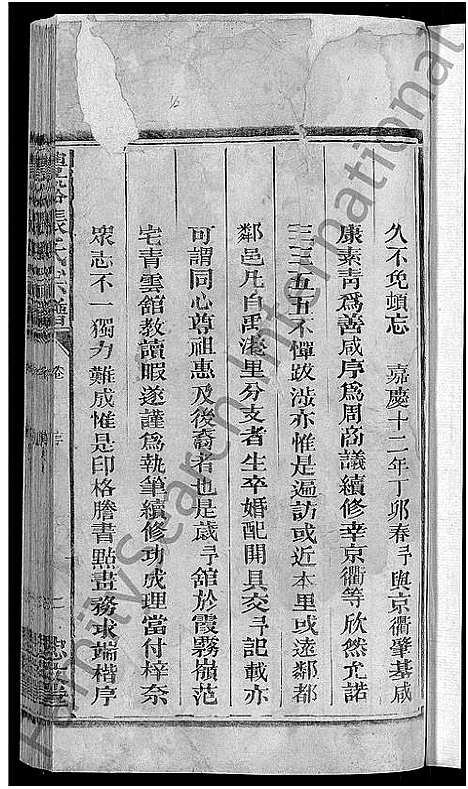 久不免頓忘 嘉慶十二年丁卯春予與京衢肇基咸
康素靑爲善咸序爲周商議續修幸京衢等欣然允諾
三三五五不憚跋涉亦惟是遍訪或近本里或遠鄰都
鄰邑凡自禹港里分支者生卒婚配開具交予記載亦
可謂同心尊祖惠及後裔者也是歲予舘於霞霧嶺范
宅靑雲舘敎讀暇遂謹爲執筆續修功成理當付梓奈
衆志不一獨力難成惟是印格謄書點畫務求端楷序
張氏宗譜
卷
FamilySearch International